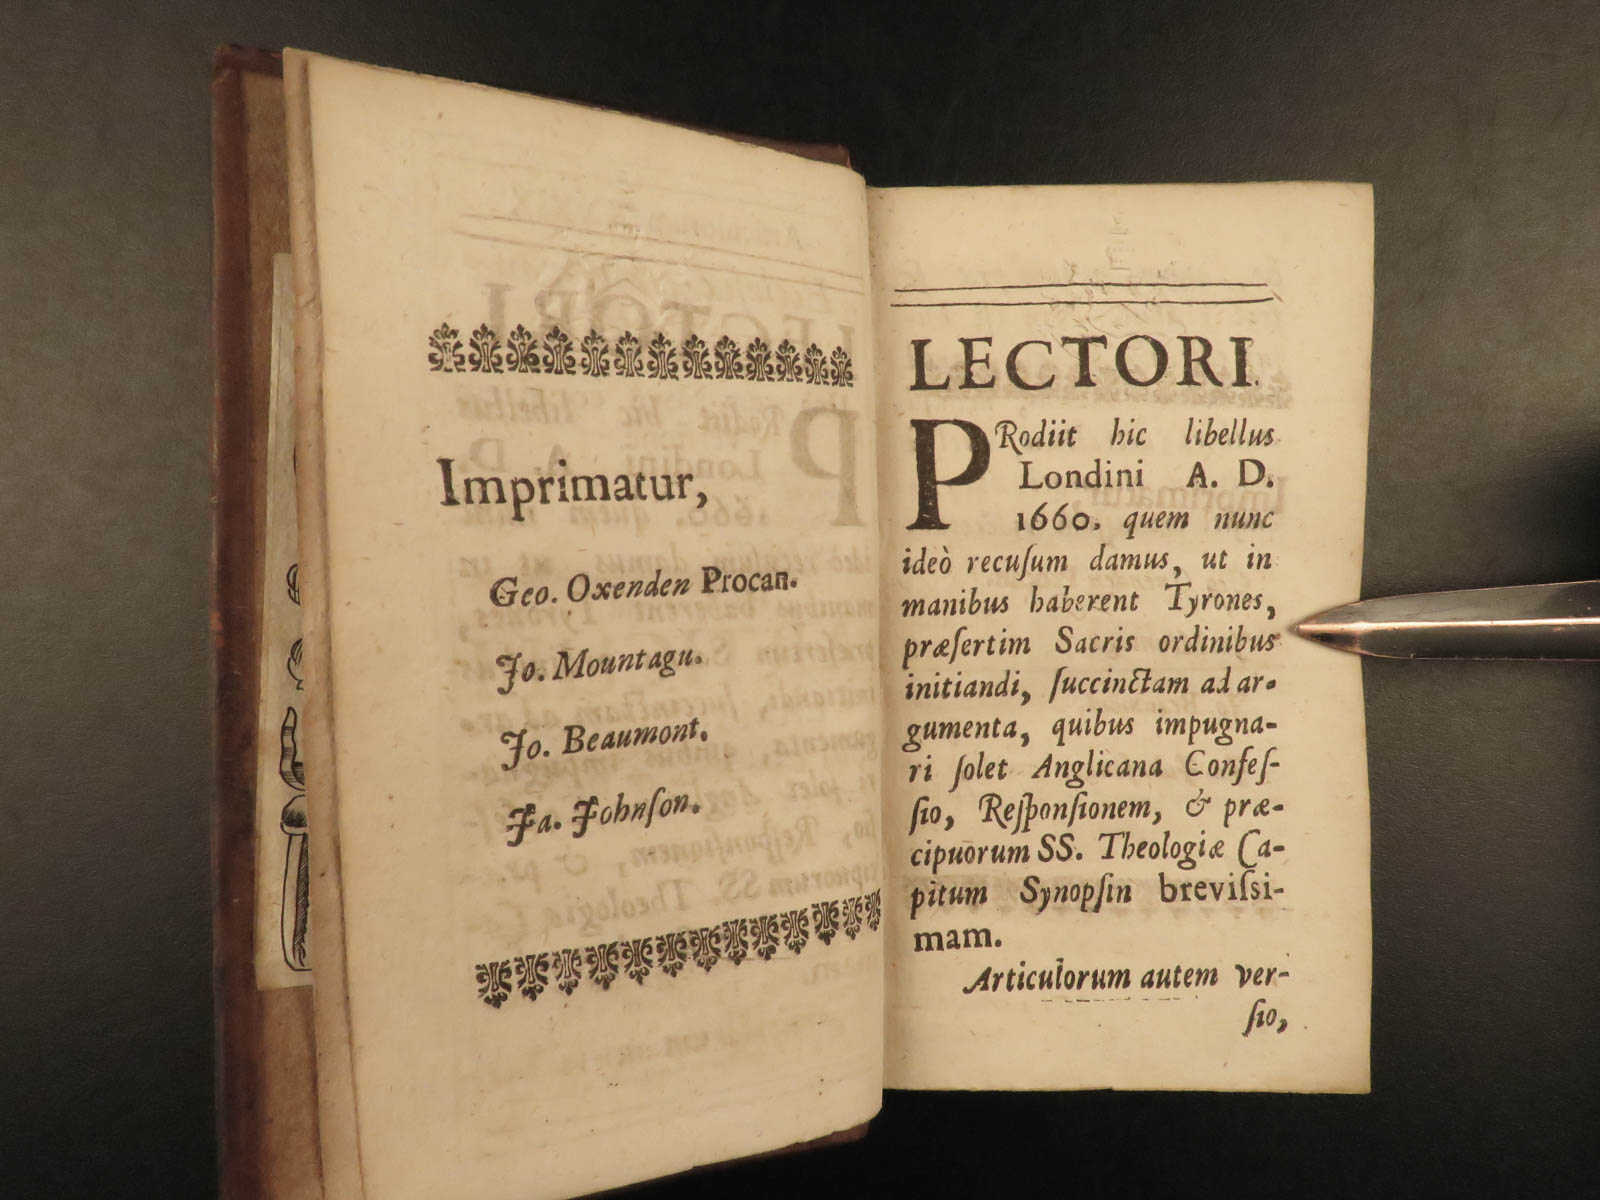 Imprimatur,
Geo. Oxenden Procan.
Jo. Mountagu.
Jo. Beaumont.
Ja. Johnſon.
LECTORI.
PRodiit hic libellus
Londini A. D.
1660. quem nunc
ideò recuſum damus, ut in
manibus haberent Tyrones,
præſertim Sacris ordinibus
initiandi, ſuccinctam ad ar-
gumenta, quibus impugna-
ri ſolet Anglicana Confeſ-
ſio, Reſponſionem, & præ-
cipuorum SS. Theologiæ Ca-
pitum Synopſin breviſsi-
mam.
Articulorum autem ver-
ſio,